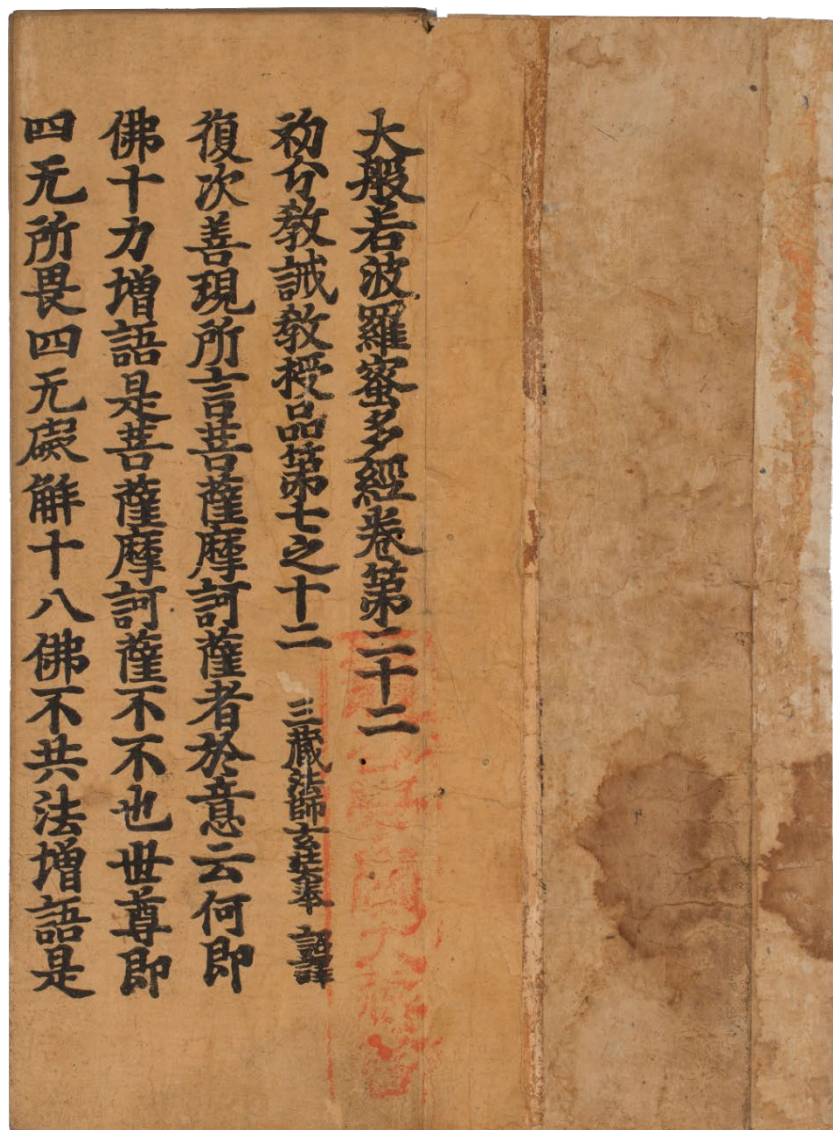 大般若波羅蜜多經卷第二十二
初分教誡教授品第七之十二 三藏法師玄奘奉 詔譯
復次善現所言菩薩摩訶薩者於意云何即
佛十力增語是菩薩摩訶薩不不也世尊即
四无所畏四无礙解十八佛不共法增語是